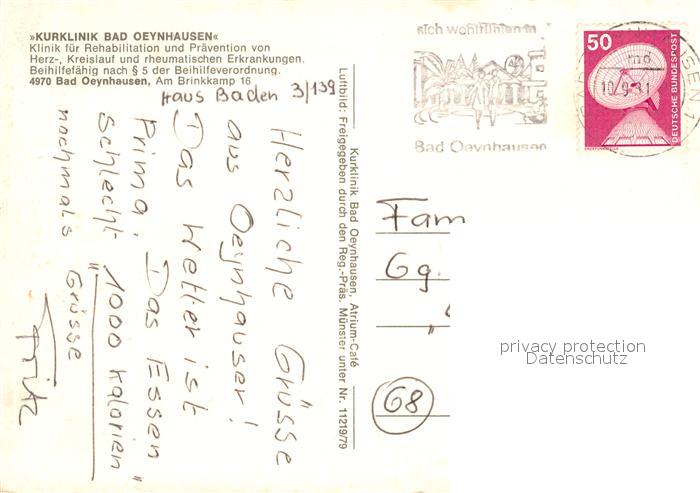 »KURKLINIK BAD OEYNHAUSEN«
Klinik für Rehabilitation und Prävention von
Herz-, Kreislauf und rheumatischen Erkrankungen.
Beihilfefähig nach § 5 der Beihilfeverordnung.
4970 Bad Oeynhausen, Am Brinkkamp 16
Haus Baden 3/139
Herzliche Grüsse
aus Oeynhausen!
Das Wetter ist
Prima. Das Essen
Schlecht "1000 Kalorien"
nochmals Grüsse
Fritz
Kurklinik Bad Oeynhausen, Atrium-Café
Luftbild: Freigegeben durch den Reg.-Präs. Münster unter Nr. 11219/79
sich wohlfühlen in
Bad Oeynhausen
50
DEUTSCHE BUNDESPOST
10.9.81
Fam
Gg.
68
privacy protection
Datenschutz